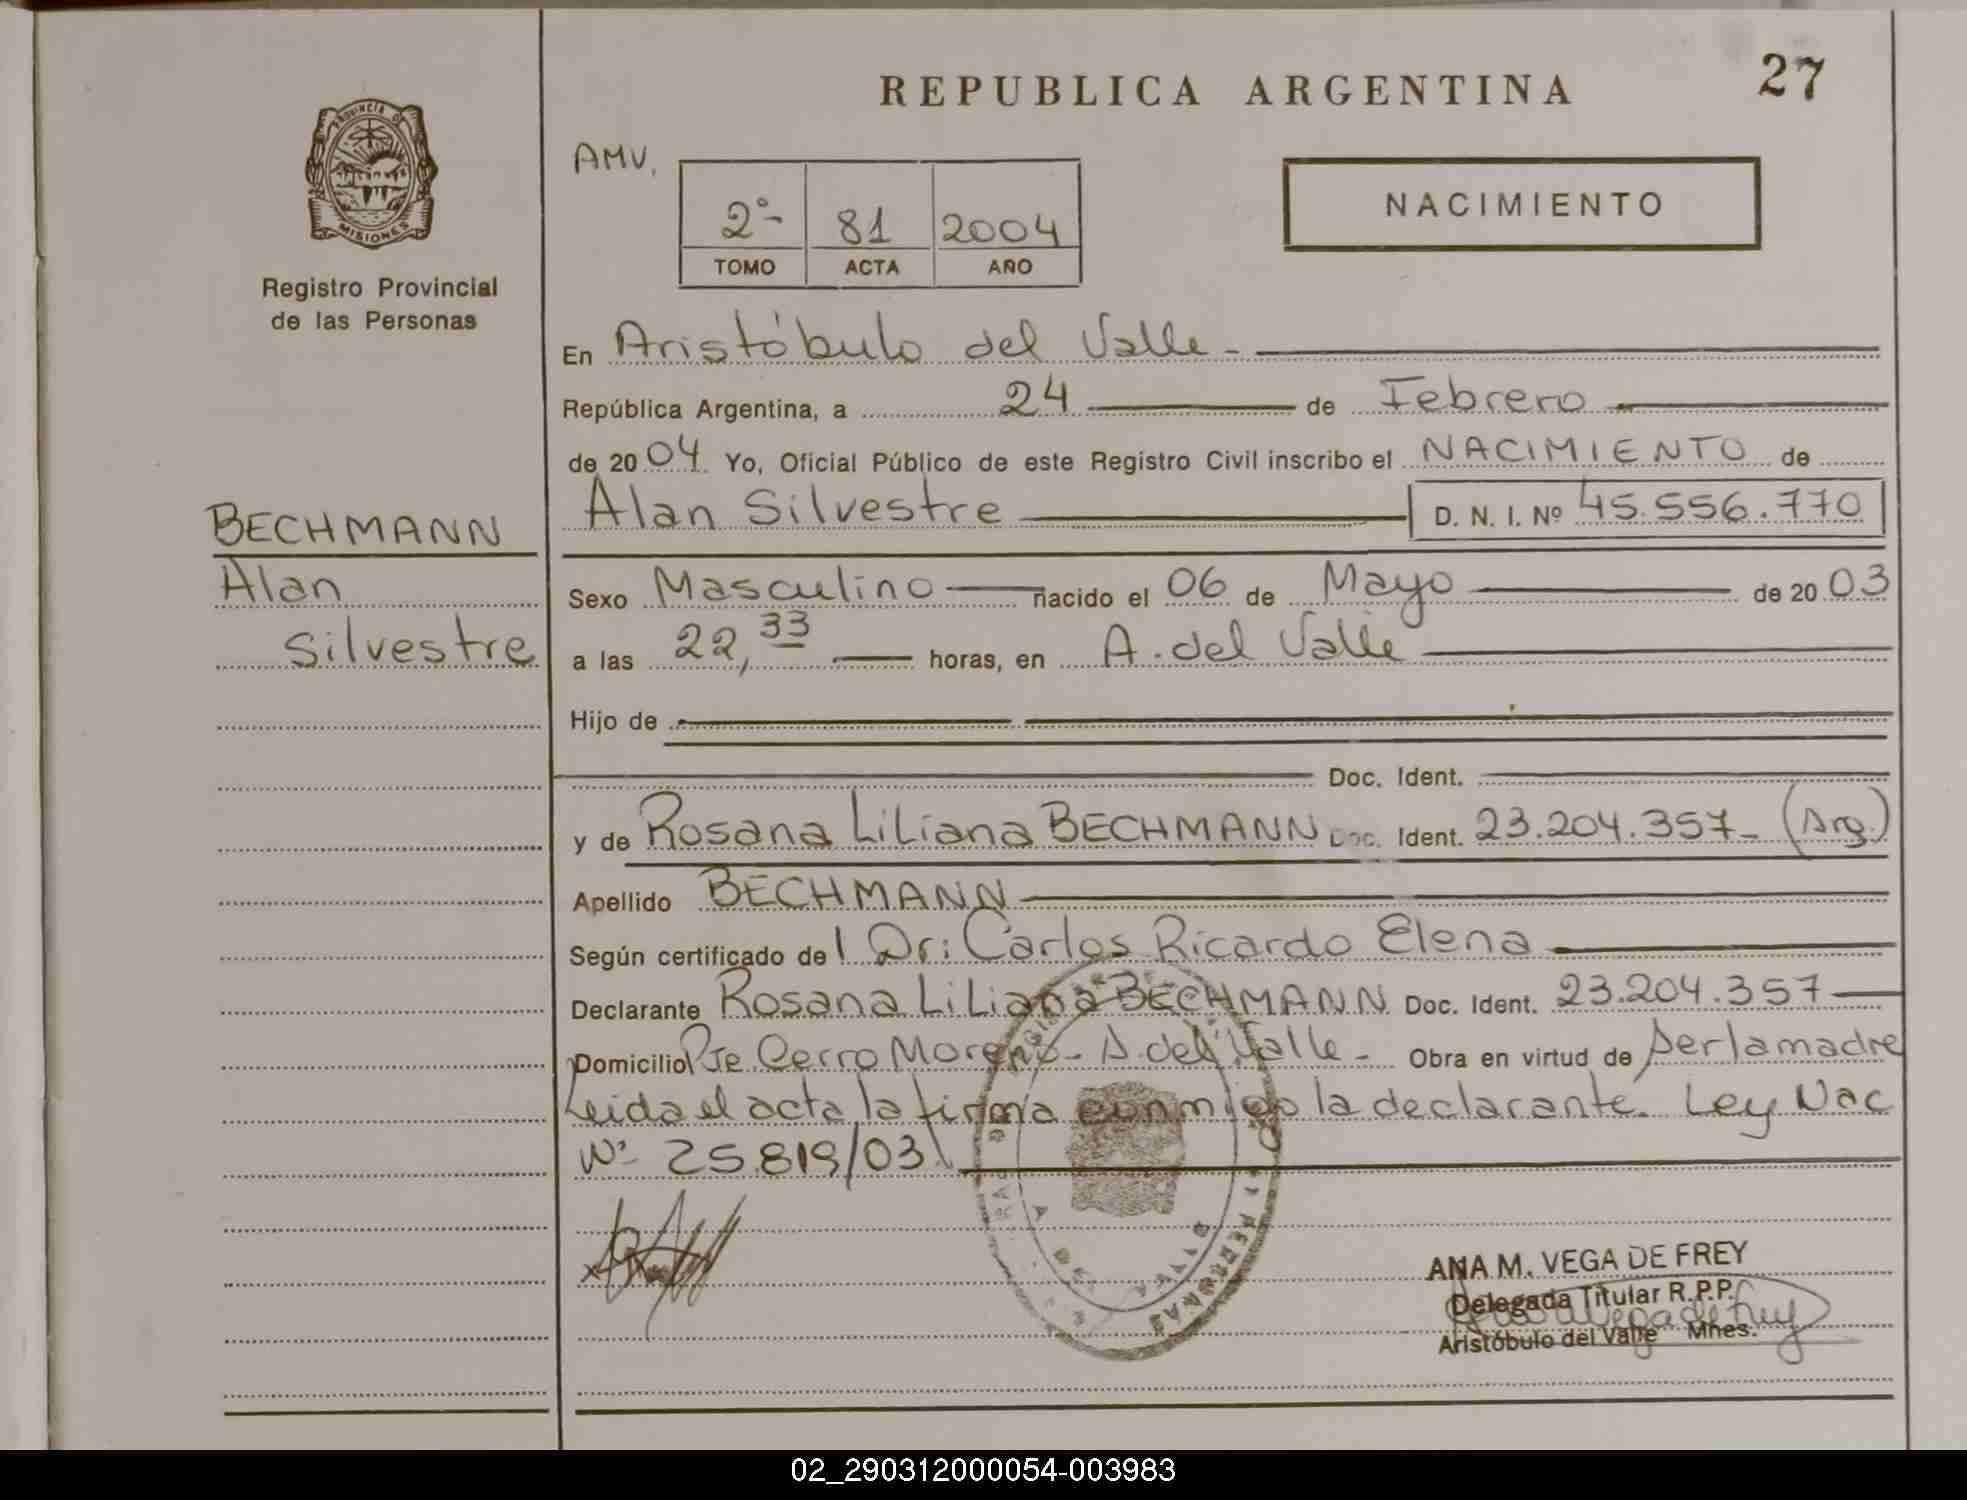 REPUBLICA ARGENTINA
27
PROVINCIA DE
MISIONES
Registro Provincial
de las Personas
AMV.
2º- 81 2004
TOMO ACTA AÑO
NACIMIENTO
En Aristóbulo del Valle -
República Argentina, a 24 de Febrero
de 2004. Yo, Oficial Público de este Registro Civil inscribo el NACIMIENTO de
Alan Silvestre D. N. I. Nº 45.556.770
BECHMANN
Alan
Silvestre
Sexo Masculino nacido el 06 de Mayo de 2003
a las 22,33 horas, en A. del Valle
Hijo de
Doc. Ident.
y de Rosana Liliana BECHMANN Doc. Ident. 23.204.357- (Arg.)
Apellido BECHMANN
Según certificado del Dr: Carlos Ricardo Elena
Declarante Rosana Liliana BECHMANN Doc. Ident. 23.204.357
Domicilio Pje. Cerro Moreno - A. del Valle - Obra en virtud de ser la madre
Leida el acta la firma conmigo la declarante. Ley Nac
Nº 25.819/03.
ANA M. VEGA DE FREY
Delegada Titular R.P.P.
Aristóbulo del Valle Mnes.
02_290312000054-003983